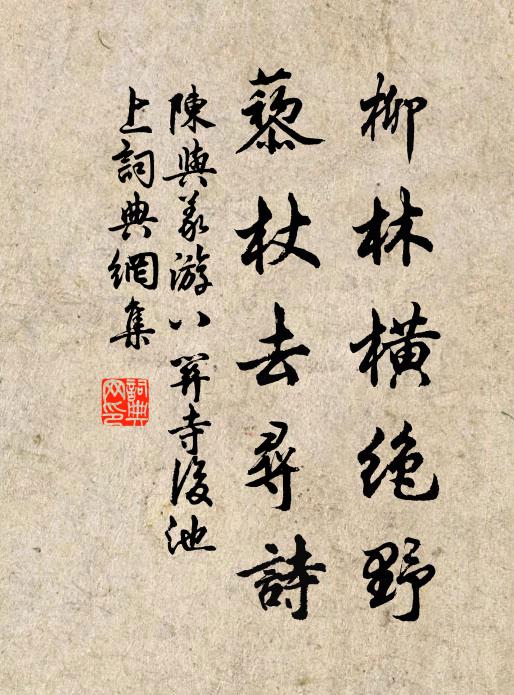 柳林橫絕野
藜杖去尋詩
陳與義游八關寺後池
上詞典網集
詞典網印